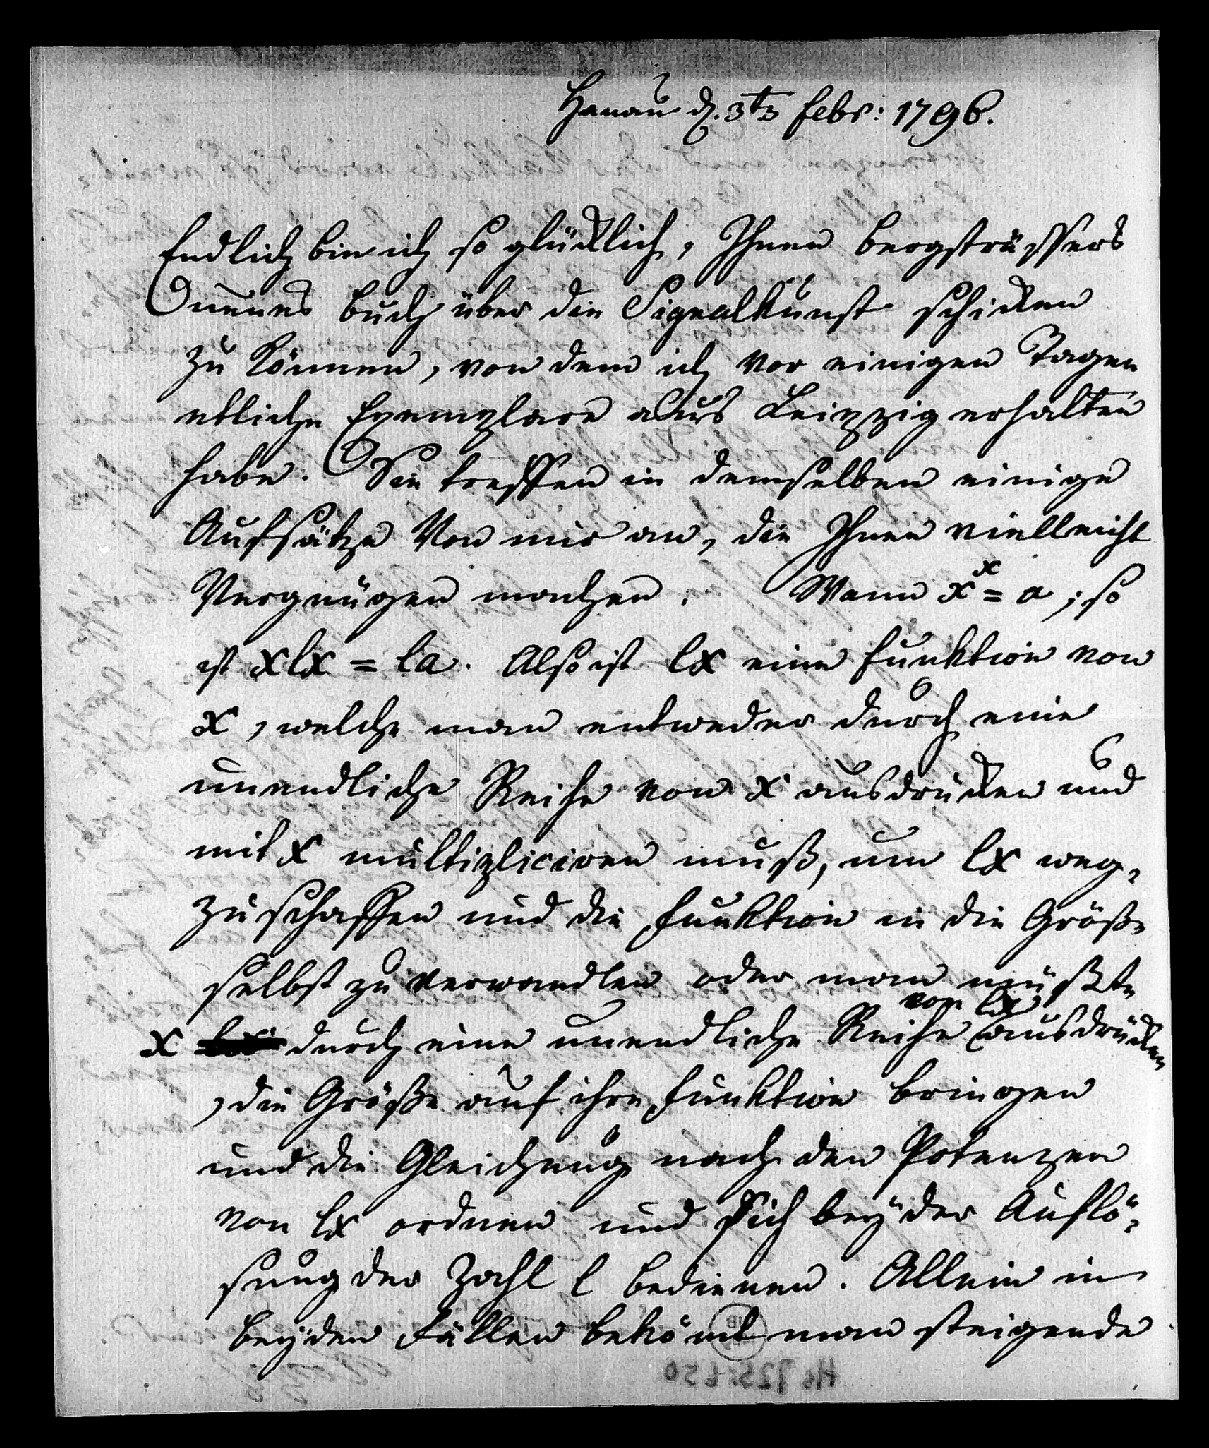 Hanau d. 3t Febr: 1796.
Endlich bin ich so glücklich, Ihnen Bergsträssers
neues Buch über die Signalkunst schicken
zu können, von dem ich vor einigen Tagen
etliche Exemplare aus Leipzig erhalten
habe. Sie treffen in demselben einige
Aufsätze von mir an, die Ihnen vielleicht
Vergnügen machen. Wenn x^x = a, so
ist xlx = la. Also ist lx eine Funktion von
x, welche man entweder durch eine
unendliche Reihe von x ausdrucken und
mit x multipliciren muß, um lx weg-
zuschaffen und die Funktion in die Größe
selbst zu verwandlen oder man müßte
x durch eine unendliche Reihe von lx ausdrücken
, die Größe auf ihre Funktion bringen
und die Gleichung nach den Potenzen
von lx ordnen und sich bey der Auflö-
sung der Zahl l bedienen. Allein in
beyden Fällen bekömt man steigende